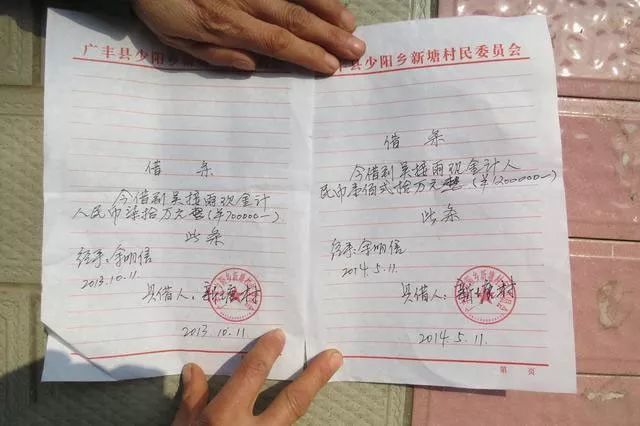 广丰县少阳乡新
借条
今借到吴接雨现金计
人民币柒拾万元整(¥700000—)
此条
经手:余明信
2013.10.11.
具借人:新塘村
2013.10.11.
丰县少阳乡新塘村民委员会
借条
今借到吴接雨现金计人
民币壹佰贰拾万元整(¥1200000—)
此条
经手:余明信
2014.5.11.
具借人:新塘村
2014.5.11.
第 页